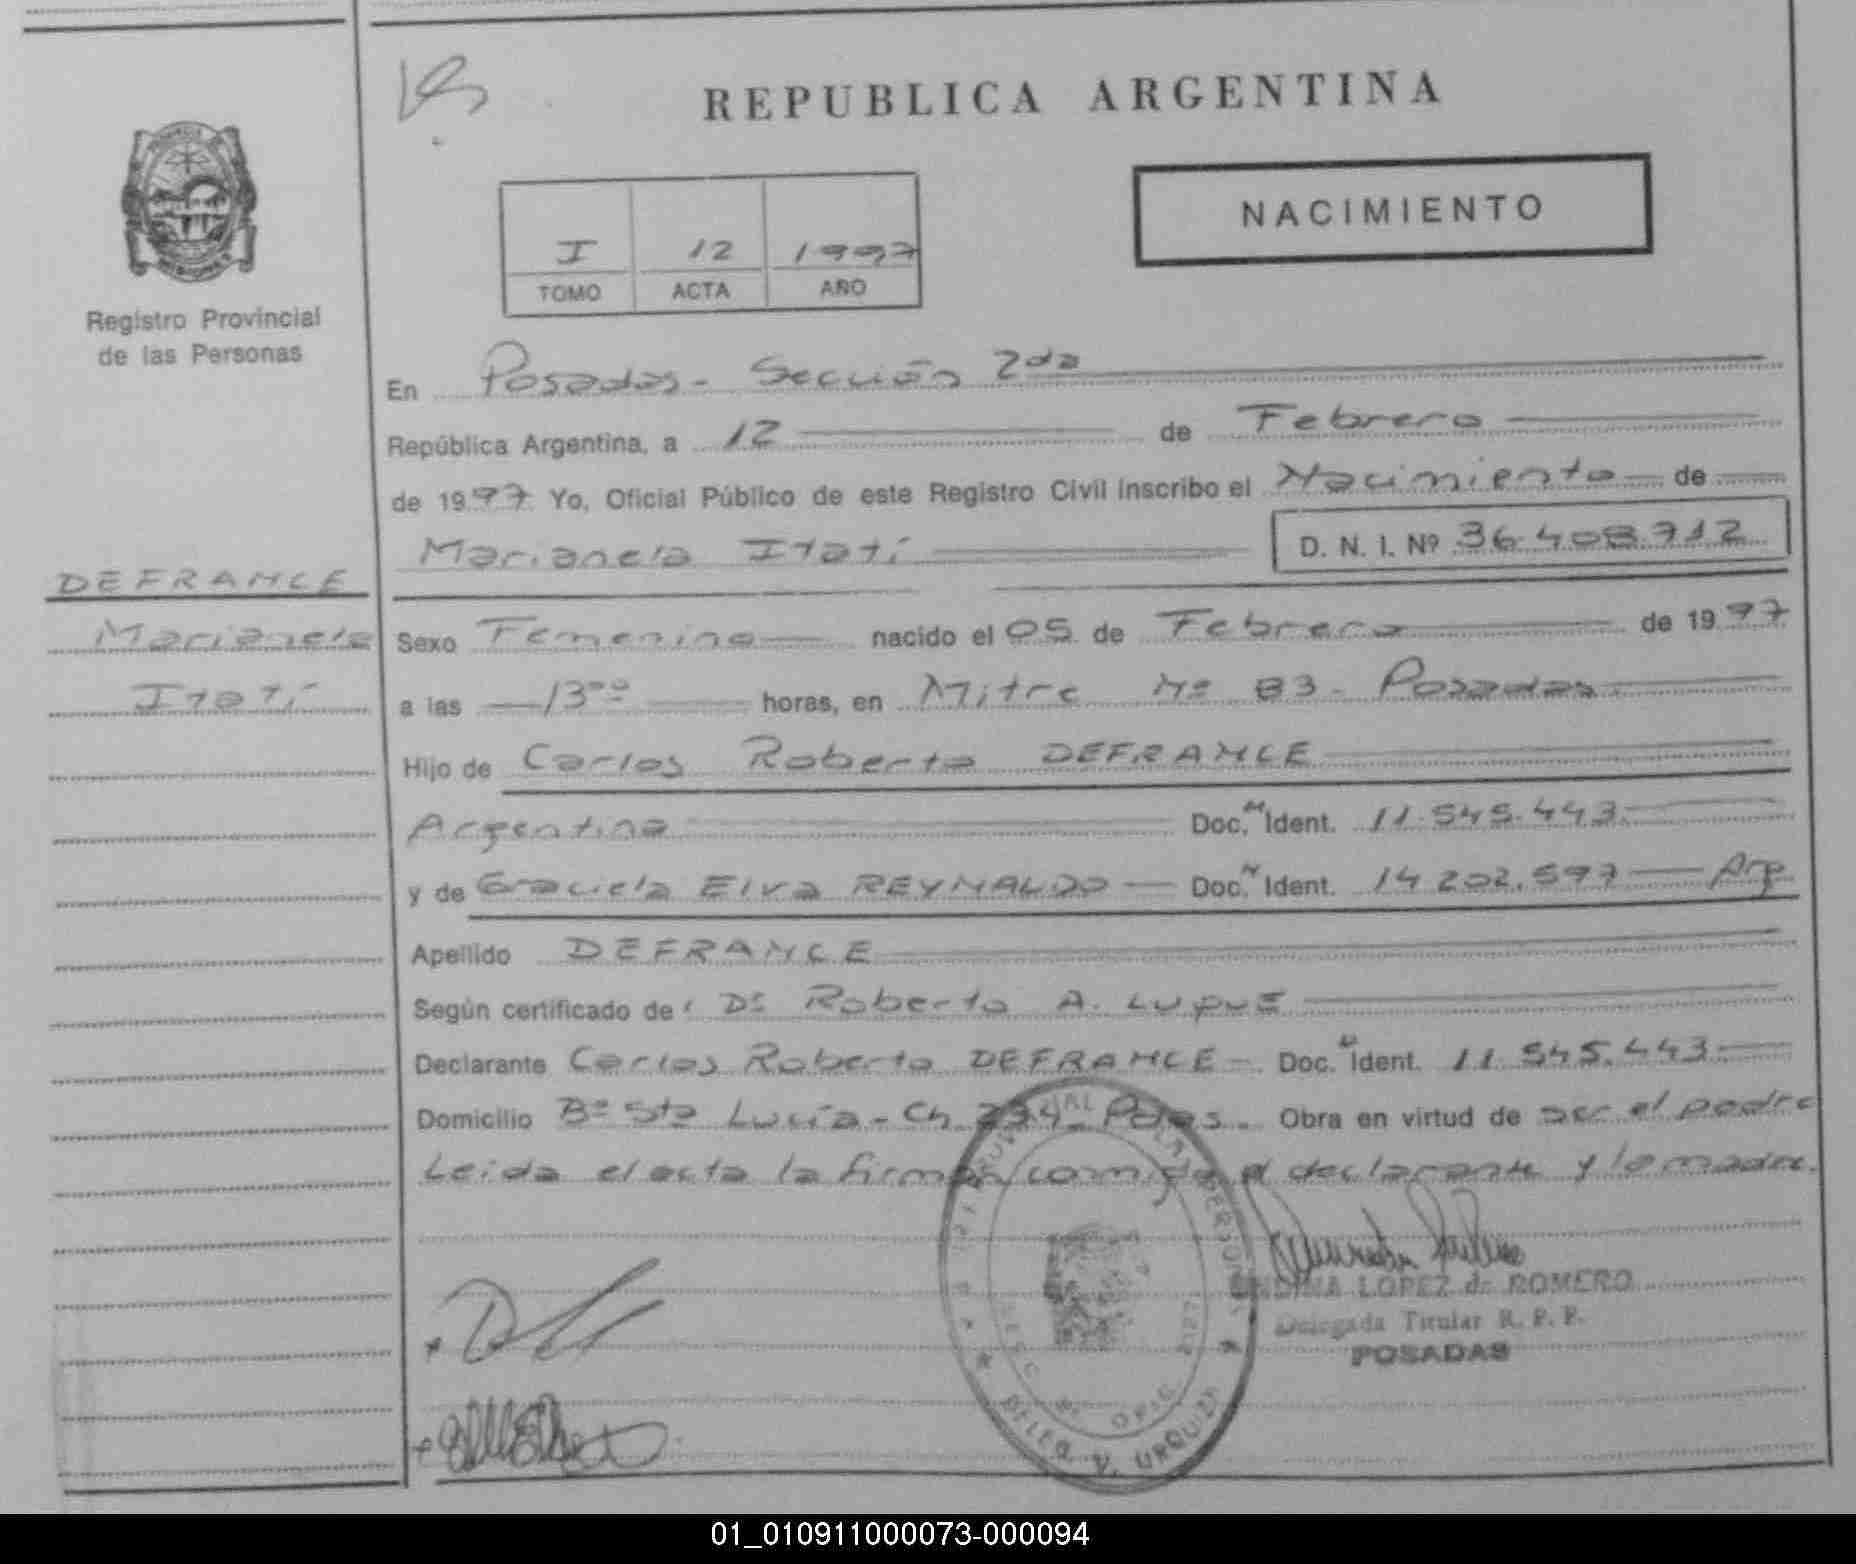 REPUBLICA ARGENTINA
NACIMIENTO
I 12 1997
TOMO ACTA AÑO
Registro Provincial
de las Personas
DEFRANCE
Marianela
Itatí
En Posadas - Sección 2da
República Argentina, a 12 de Febrero
de 1997 Yo, Oficial Público de este Registro Civil inscribo el Nacimiento de
Marianela Itatí D. N. I. Nº 36.408.712
Sexo Femenino nacido el 05 de Febrero de 1997
a las 13ºº horas, en Mitre Nº 83 - Posadas
Hijo de Carlos Roberto DEFRANCE
Argentina Doc. Ident. 11.545.443
y de Graciela Elva REYNALDO Doc. Ident. 14.202.597 Arg
Apellido DEFRANCE
Según certificado de: Dr Roberto A. Lupué
Declarante Carlos Roberto DEFRANCE - Doc. Ident. 11.545.443
Domicilio Bº Sta Lucía - Ch 234 - Pdas. Obra en virtud de ser el padre
Leida el acta la firman conmigo el declarante y la madre.
LOPEZ de ROMERO
Delegada Titular R. P. P.
POSADAS
01_010911000073-000094